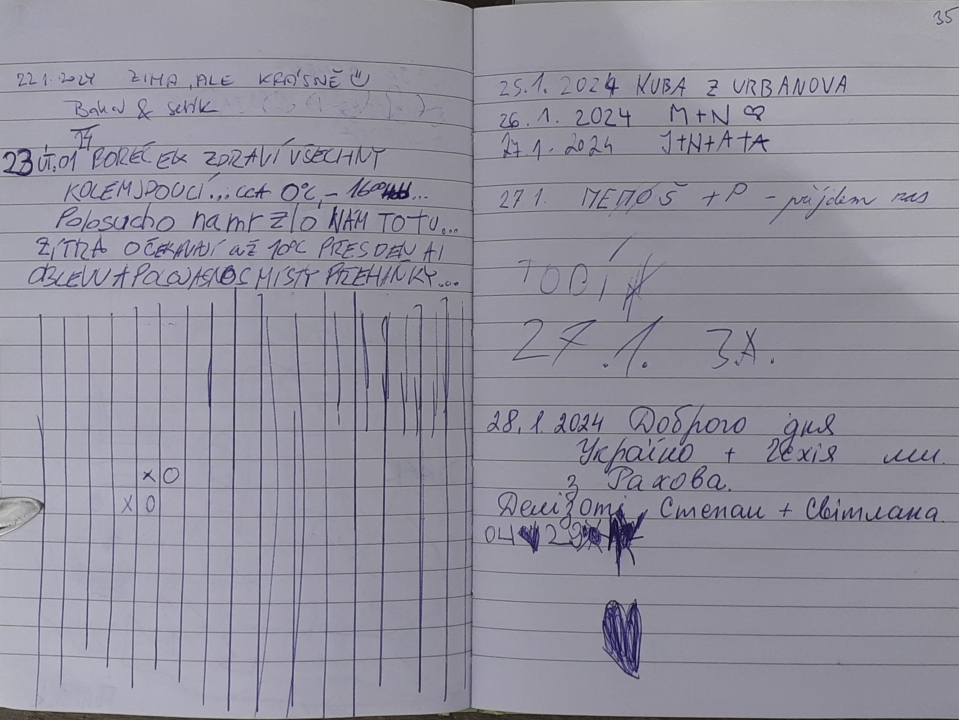 22.1.2024 ZIMA, ALE KRÁSNĚ
&
23 ÚT.01 POREČEK ZDRAVÍ VŠECHNY
KOLEMJDOUCÍ... CCA 0°C, -
Polosucho namrzlo NÁM TOTU...
ZÍTRA OČEKÁVÁJÍ AŽ 10°C PŘES DEN AI
OBLEVA POLOJASNO S MISTY PŘEHÁŇKY...
X O
X O
35
25.1.2024 KUBA Z URBANOVA
26.1.2024 M+N
27.1.2024 J+N+A+A
27.1. + P - přijdem zas
TOBÍK
27.1. 3A.
28.1.2024 Доброго дня
Україно + Чехія ми
з Рахова.
Степан + Світлана
04 29